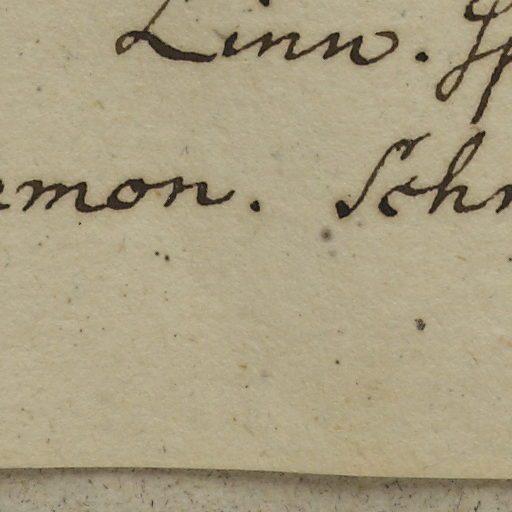 Linn. Sp
emon. Schr